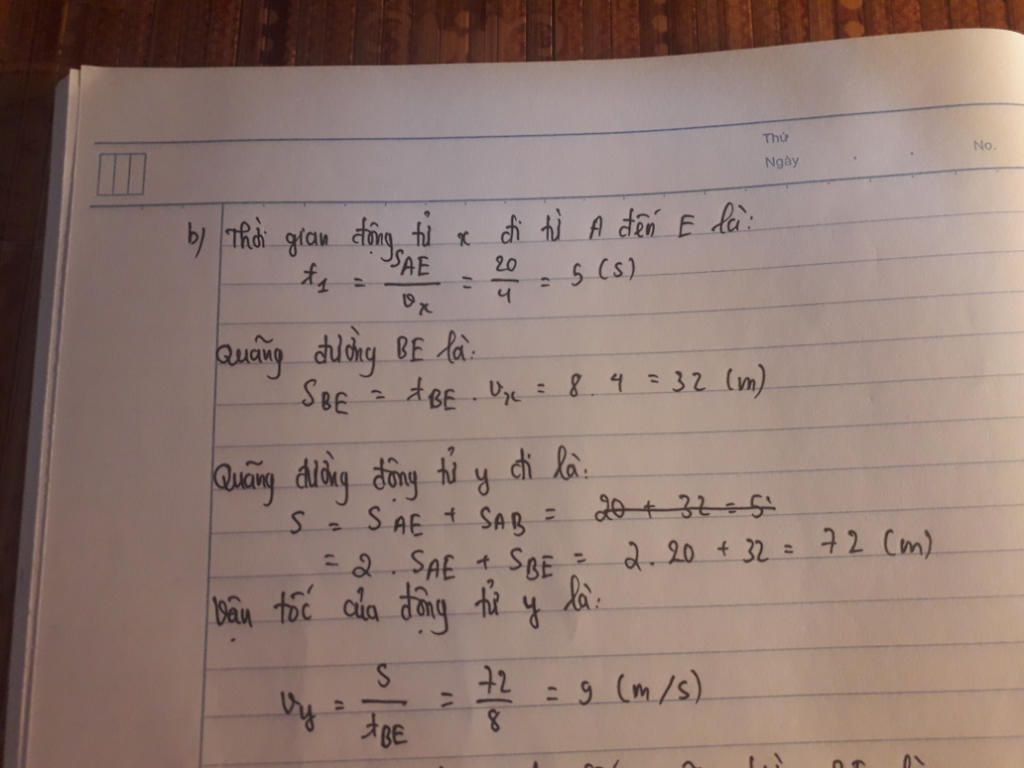 Thứ
Ngày . . No.
b) Thời gian động tử x đi từ A đến E là:
t₁ = S_AE / v_x = 20 / 4 = 5 (s)
Quãng đường BE là:
S_BE = t_BE . v_x = 8 . 4 = 32 (m)
Quãng đường động tử y đi là:
S = S_AE + S_AB = 20 + 32 = 5
= 2 . S_AE + S_BE = 2. 20 + 32 = 72 (m)
Vận tốc của động tử y là:
v_y = S / t_BE = 72 / 8 = 9 (m/s)